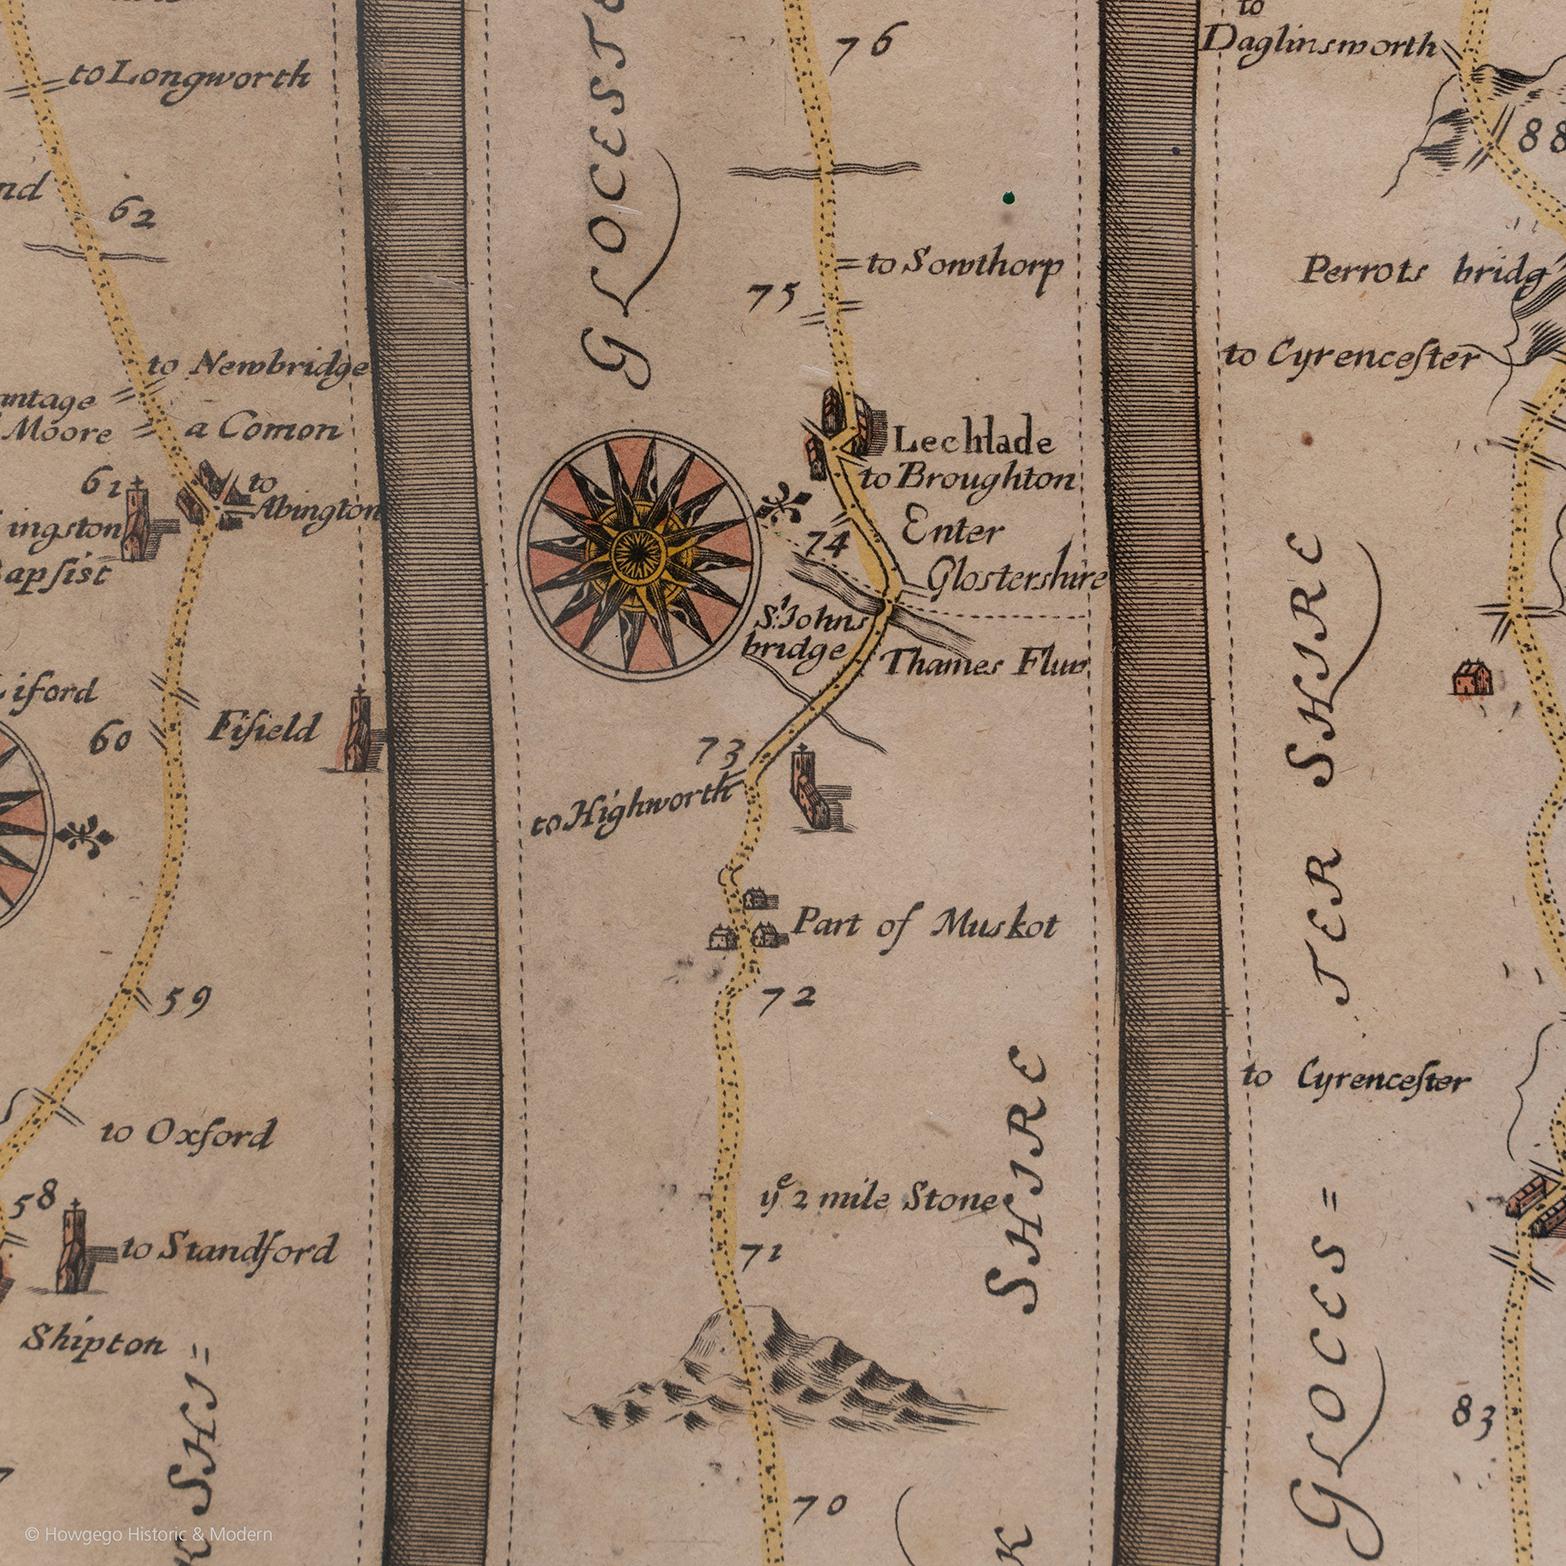 to Longworth
nd
62
to Newbridge
antage
Moore
a Comon
61
to
Abington
ingston
apſist
iford
60
Fifield
59
to Oxford
58
to Standford
Shipton
K SHI=
76
GLOCESTE
to Sowthorp
75
Lechlade
to Broughton
Enter
74
Glostershire
St. Johns
bridge
Thames Fluv
73
to Highworth
Part of Muskot
72
ye 2 mile Stone
71
70
K SHIRE
to
Daglinsworth
88
Perrots bridg
to Cyrenceſter
to Cyrenceſter
83
GLOCES=
TER SHIRE
© Howgego Historic & Modern